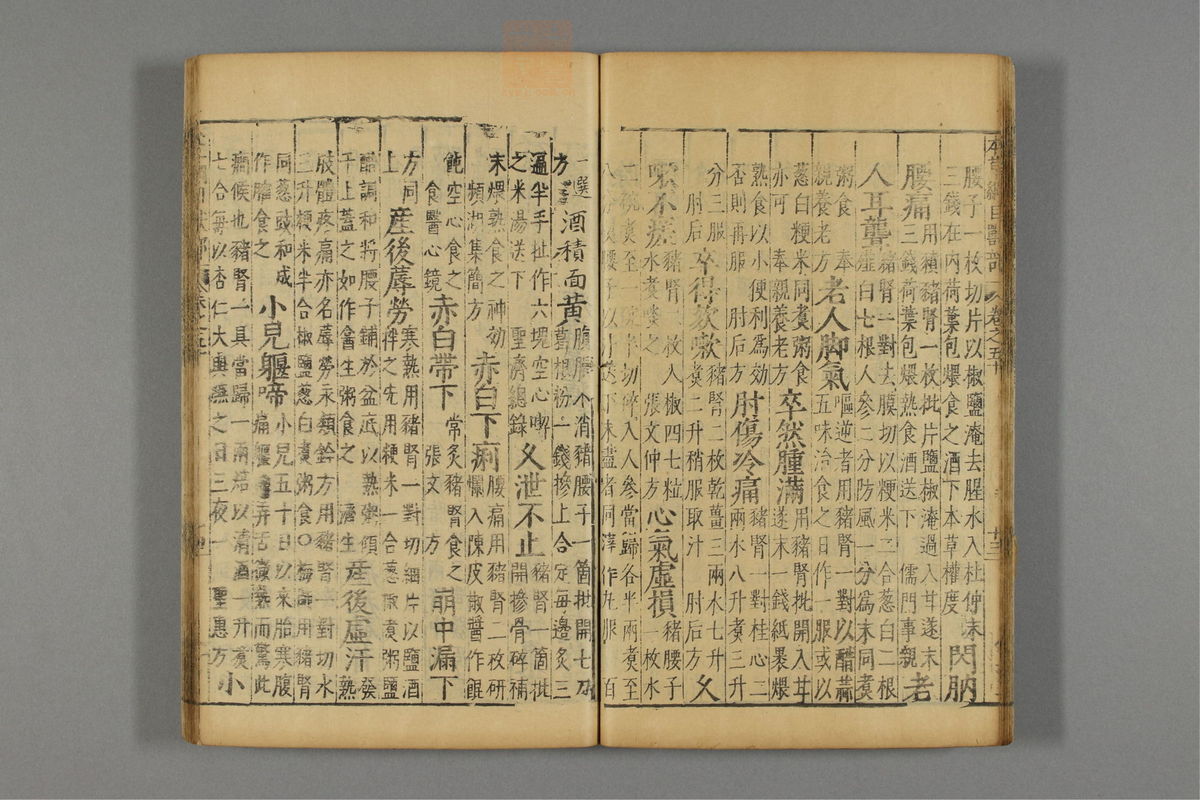 腰子一枚切片以椒鹽淹去腥水入杜仲末
三錢在內荷葉包煨食之酒下本草權度 閃肭
腰痛用豶豬腎一枚批片鹽椒淹過入甘遂末
三錢荷葉包煨熟食酒送下 儒門事親 老
人耳聾豬腎一對去膜切以粳米二合葱白二根
薤白七根人參二分防風一分爲末同煑
粥食 奉親養老方 老人脚氣嘔逆者用豬腎一對以醋蒜
五味治食之日作一服或以
葱白粳米同煑粥食
亦可 奉親養老方 卒然腫滿用豬腎批開入甘
遂末一錢紙裹煨
熟食以小便利爲效
否則再服 肘后方 肘傷冷痛豬腎一對桂心二
兩水八升煑三升
分三服
肘后 卒得欬嗽豬腎二枚乾薑三兩水七升
煑二升稍服取汁 肘后方 久
嗽不瘥豬腎二枚入椒四七粒
水煑啖之 張文仲方 心氣虛損豬腰子
一枚水
二碗煑至一 切碎入人參當歸各半兩煑至
八 腰子以汁送下未盡者同滓作丸服 百
一選
方 酒積面黃腹脹不消豬腰子一箇批開七刀
葛根粉一錢摻上合定每邊炙三
遍半手扯作六塊空心喫
之米湯送下 聖濟總錄 久泄不止豬腎一箇批
開摻骨碎補
末煨熟食之神効
頻湖集簡方 赤白下痢腰痛用豬腎二枚研
爛入陳皮椒醬作餛
飩空心食之
食醫心鏡 赤白帶下常炙豬腎食之
張文 方 崩中漏下
方同
上 産後蓐勞寒熱用豬腎一對切細片以鹽酒
拌之先用粳米一合葱椒煑粥鹽
醋調和將腰子鋪於盆底以熱粥傾
于上蓋之如作盦生粥食之 濟生 産後虛汗發
熱
肢體疼痛亦名蓐勞永類鈐方用豬腎一對切水
三升粳米半合椒鹽葱白煑粥食○ 用豬腎
同葱豉和成
作臛食之 小兒軀啼小兒五十日以來胎寒腹
痛軀 弄舌微熱而驚此
癇候也豬腎一具當歸一兩焙以清酒一升煑
七合每以杏仁大與嚥之日三夜一 聖惠方 小